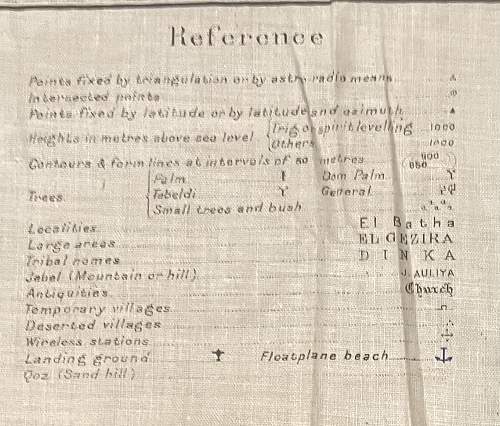 Reference
Points fixed by triangulation or by astro-radio means
Intersected points
Points fixed by latitude or by latitude and azimuth
Heights in metres above sea level Trig or spirit levelling 1000
Others 1000
Contours & form lines at intervals of 50 metres 900 850
Trees Palm Dom Palm
Tebeldi General
Small trees and bush
Localities El Batha
Large areas EL GEZIRA
Tribal names DINKA
Jebel (Mountain or hill) J. AULIYA
Antiquities Church
Temporary villages
Deserted villages
Wireless stations
Landing ground Floatplane beach
Qoz (Sand hill)